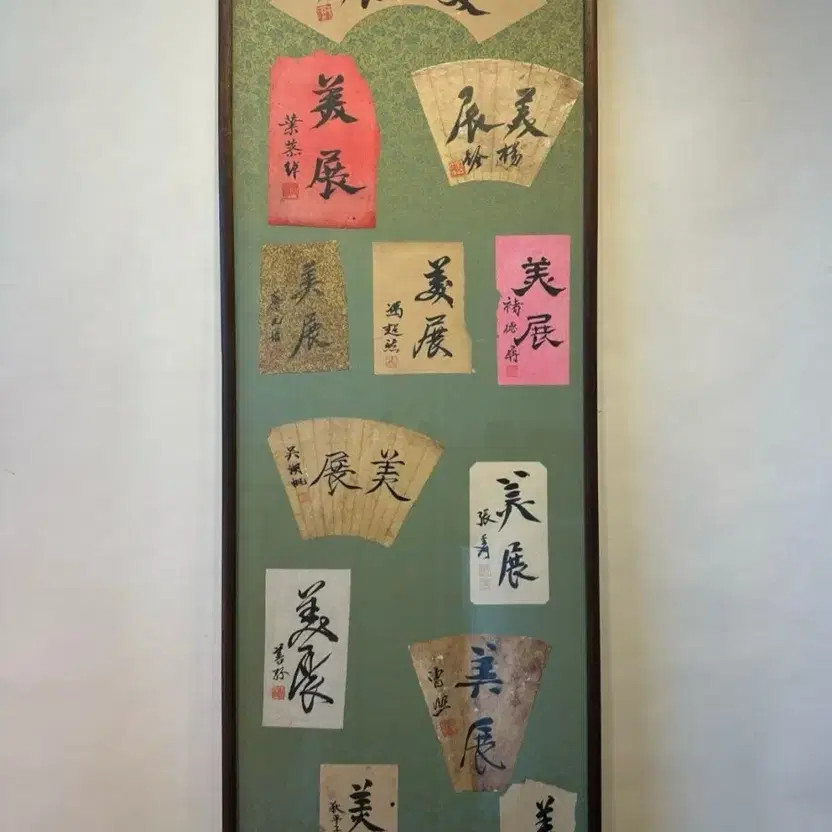 美展
葉恭綽
美展
楊銓
美展
蔡元培
美展
馮超然
美展
褚德彝
美展
吳湖帆
美展
張爰
美展
善孖
美展
曾熙
美
美